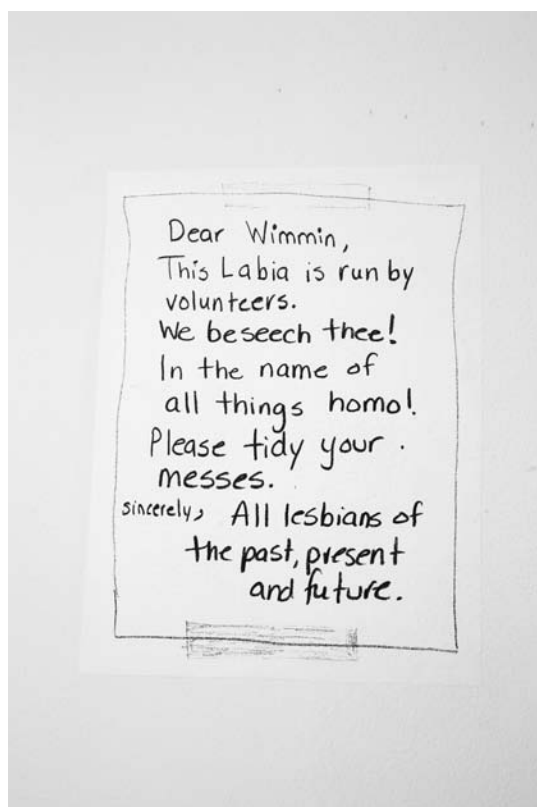 Dear Wimmin,
This Labia is run by
volunteers.
We beseech thee!
In the name of
all things homo!
Please tidy your
messes.
sincerely, All lesbians of
the past, present
and future.